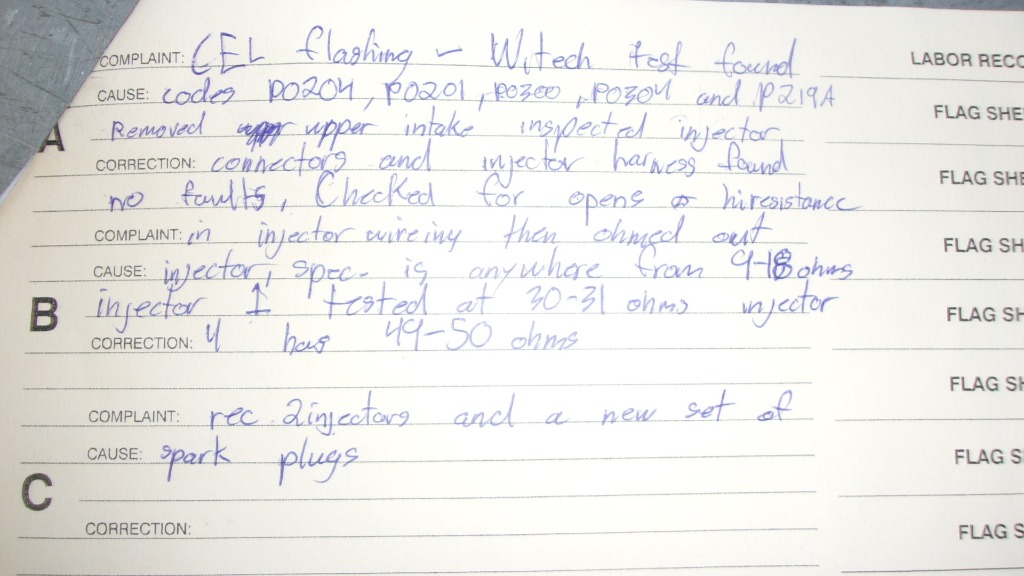 COMPLAINT: CEL flashing - Witech test found
LABOR RECO
CAUSE: codes P0204, P0201, P0300, P0304 and P219A
FLAG SHE
A
Removed upper intake inspected injector
CORRECTION: connectors and injector harness found
FLAG SHE
no faults, Checked for opens or hiresistance
COMPLAINT: in injector wireing then ohmed out
FLAG SH
CAUSE: injector, spec. is anywhere from 9-18 ohms
B
injector 1 tested at 30-31 ohms injector
FLAG SH
CORRECTION: 4 has 49-50 ohms
FLAG SH
COMPLAINT: rec 2 injectors and a new set of
CAUSE: spark plugs
FLAG S
C
CORRECTION:
FLAG S